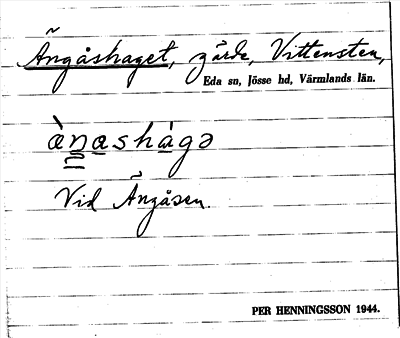 Ängåshaget, gärde, Vittensten,
Eda sn, Jösse hd, Värmlands län.
àŋashágə
Vid Ängåsen.
PER HENNINGSSON 1944.